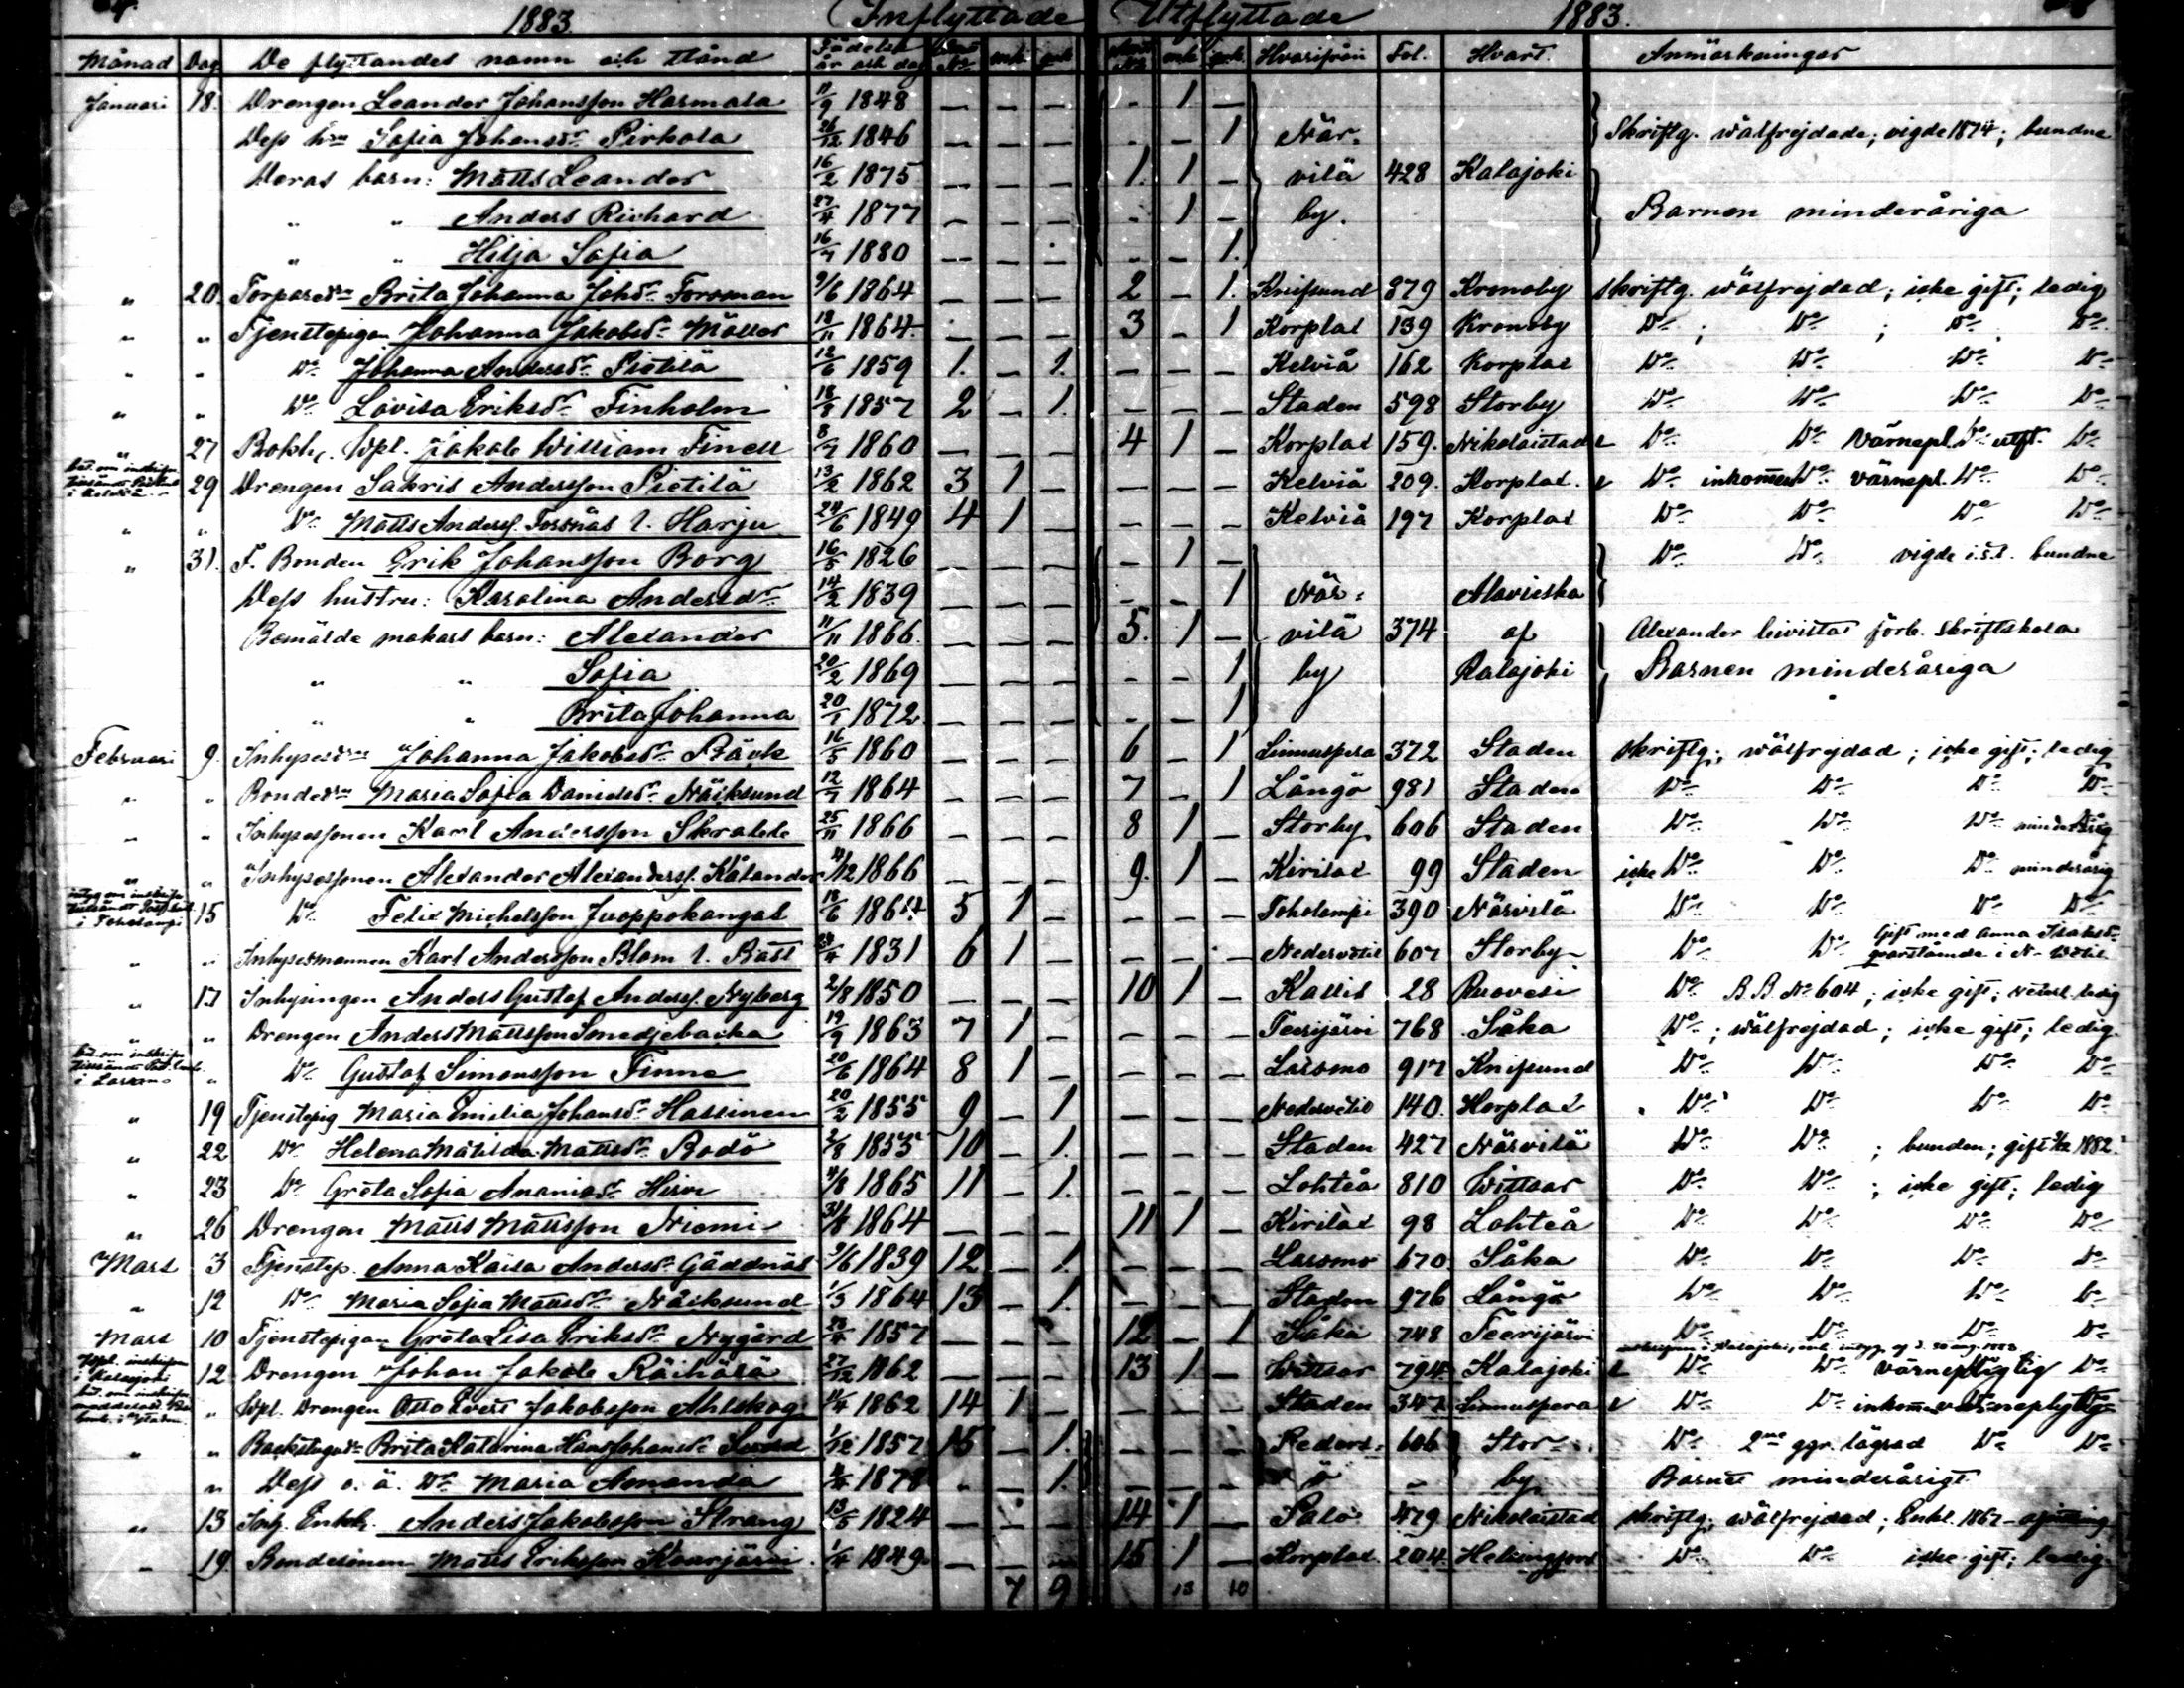 1883. Inflyttade Utflyttade 1883.
Månad Dag De flyttandes namn och stånd Födelse år och dag mk. qvk. mk. qvk. Hvarifrån Fol. Hvart. Anmärkningar
Januari 18. Drengen Leander Johansson Harmala 11/9 1848 — — — - 1 —
Dess h:u Sofia Johansdr Pirkola 26/12 1846 — — — - - 1 När- Skriftg. wälfrejdade; vigde 1874; bundne
Deras barn: Matts Leander 16/2 1875 — — — 1. 1 — vilä 428 Kalajoki
" " Anders Richard 27/4 1877 — — — - 1 — by. Barnen minderåriga
" " Hilja Sofia 16/7 1880 — — — - - 1.
" 20. Torparedr Brita Johanna Johdr Forsman 9/6 1864 — — — 2 — 1. Knifsund 879 Kronoby skriftg. wälfrejdad; icke gift; ledig
" " Tjenstepigan Johanna Jakobsdr Möller 18/11 1864. — — — 3 — 1 Korplax 139 Kronoby Do; Do; Do Do
" " Do Johanna Andersdr Pietilä 12/6 1859 1. — 1. — — — Kelviå 162 Korplax Do Do Do Do
" " Do Lovisa Eriksdr Finholm 18/8 1857 2 — 1. — — — Staden 598 Storby Do Do Do Do
" 27 Bokh. Wpl. Jakob William Finell 8/7 1860 — — — 4 1 — Korplax 159. Nikolaistad Do Do Värnepl. Do utft. Do
29 Drengen Sakris Andersson Pietilä 13/2 1862 3 1 — — — — Kelviå 209. Korplax. Do inkommen Do värnepl. Do Do
" " Do Matts Anderss. Forsnäs l. Harju 24/6 1849 4 1 — — — — Kelviå 197 Korplax Do Do Do Do
" 31. F. Bonden Erik Johansson Borg 16/5 1826 — — — - 1 — Do Do vigde i.s.t. bundne
Dess hustru: Karolina Andersdr 14/2 1839 — — — - - 1 När- Alavieska
Bemälde makars barn: Alexander 11/11 1866. — — — 5. 1 — vilä 374 af Alexander bivistat förb. skriftskola
" " Sofia 20/2 1869 — — — - - 1 by Kalajoki Barnen minderåriga
" " Brita Johanna 20/1 1872. — — — - - 1
Februari 9. Inhysesdr Johanna Jakobsdr Bäck 16/5 1860 — — — 6 — 1 Linnuspera 372 Staden skriftg.; wälfrejdad; icke gift; ledig
" " Bondedr Maria Sofia Danielsdr Näcksund 12/7 1864 — — — 7 — 1 Långö 981 Staden Do Do Do Do
" " Inhysessonen Karl Andersson Skrabb 25/11 1866 — — — 8 1 — Storby 606 Staden Do Do Do minderårig
" " Inhysessonen Alexander Alexanderss. Kålander 11/12 1866 — — — 9. 1 — Kirilax 99 Staden icke Do Do Do minderårig
15 Do Felix Michelsson Juoppokangas 18/6 1864 5 1 — — — — Toholampi 390 Närvilä Do Do Do Do
" " Inhysesmannen Karl Andersson Blom l. Bast 24/4 1831 6 1 — — — — Nedervetil 607 Storby Do Do Gift med Anna Isaksdr qvarstående i N-Wetil
" 17 Inhysingen Anders Gustaf Anderss. Nyberg 2/8 1850 — — — 10 1 — Kallis 28 Ruovesi Do B.B. No 604; icke gift; ledig
" " Drengen Anders Mattsson Smedjebacka 19/9 1863 7 1 — — — — Teerijärvi 768 Såka Do; wälfrejdad; icke gift; ledig.
" Do Gustaf Simonsson Finne 20/6 1864 8 1 — — — — Larsmo 917 Knifsund Do Do Do Do
" 19 Tjenstepig Maria Emilia Johansdr Hassinen 20/2 1855 9 — 1 — — — Nedervetil 140. Korplax Do Do Do Do
" 22 Do Helena Matilda Mattsdr Rodö 2/8 1853 10 — 1. — — — Staden 427 Närvilä Do Do ; bunden; gift 1882.
" 23 Do Greta Sofia Ananiasdr Hirvi 4/8 1865 11 — 1. — — — Lohteå 810 Wittsar Do Do ; icke gift; ledig
" 26 Drengen Matts Mattsson Niemi 31/8 1864 — — — 11 1 — Kirilax 98 Lohteå Do Do Do Do
Mars 3 Tjenstep. Anna Kaisa Andersdr Gäddnäs 9/6 1839 12 — 1. — — — Larsmo 670. Såka Do Do Do Do
" 12 Do Maria Sofia Mattsdr Näcksund 1/3 1864 13 — 1. — — — Staden 976 Långö Do Do Do Do
Mars 10 Tjenstepigan Greta Lisa Eriksdr Nygård 1857 — — — 12 — 1 Såka 748 Teerijärvi Do Do Do Do
12 Drengen Johan Jakob Räihälä 27/12 1862 — — — 13 1 — Wittsar 794. Kalajoki Do Do värnepligtig Do
" Wpl. Drengen Otto Evert Jakobsson Ahlskog 11/4 1862 14 1 — — — — Staden 347 Linnuspera Do Do inkommen värneplygtig
" " Backstugudr Brita Katarina Hans Johansdr Sund 1/12 1857 15 — 1. — — — Reders- 606 Stor- Do 2ne ggr. lägrad Do Do
" Dess o. ä. Dr Maria Amanda 1878 - — 1. — — — ö - by Barnet minderårigt
" 13 Inh. Enkl. Anders Jakobsson Strang 13/5 1824 — — — 14 1 — Palo 479 Nikolaistad skriftg; wälfrejdad; Enkl. 1867
" 19. Bondesonen Matts Eriksson Kaarjärvi 1/4 1849. — — — 15 1 — Korplax. 204. Helsingfors Do Do icke gift; ledig
7 9 13 10